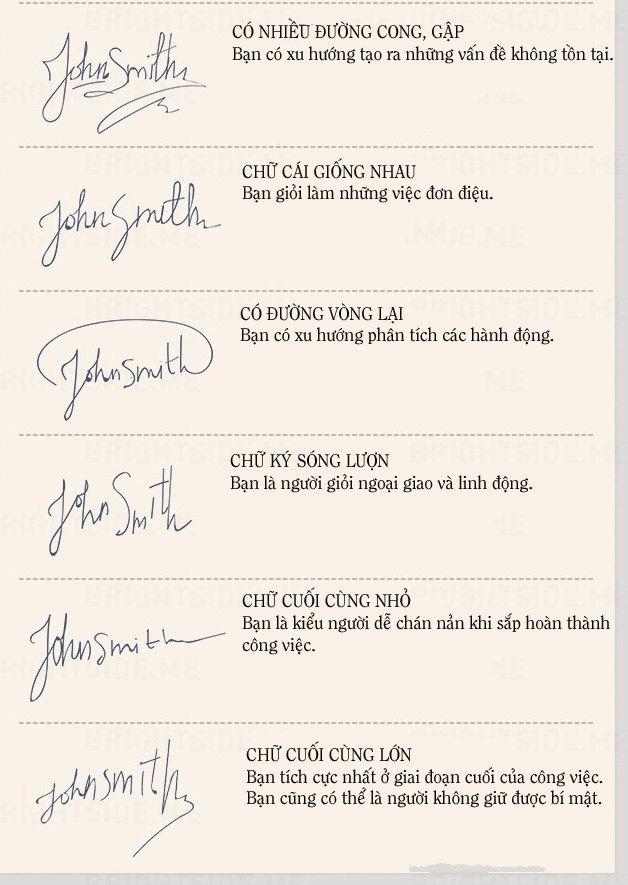 John Smith
CÓ NHIỀU ĐƯỜNG CONG, GẬP
Bạn có xu hướng tạo ra những vấn đề không tồn tại.
John Smith
CHỮ CÁI GIỐNG NHAU
Bạn giỏi làm những việc đơn điệu.
John Smith
CÓ ĐƯỜNG VÒNG LẠI
Bạn có xu hướng phân tích các hành động.
John Smith
CHỮ KÝ SÓNG LƯỢN
Bạn là người giỏi ngoại giao và linh động.
John Smith
CHỮ CUỐI CÙNG NHỎ
Bạn là kiểu người dễ chán nản khi sắp hoàn thành
công việc.
John Smith
CHỮ CUỐI CÙNG LỚN
Bạn tích cực nhất ở giai đoạn cuối của công việc.
Bạn cũng có thể là người không giữ được bí mật.
BRIGHTSIDE.ME